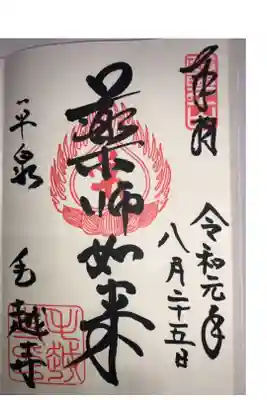 奉拝
令和元年
八月二十五日
薬師如来
平泉 毛越寺